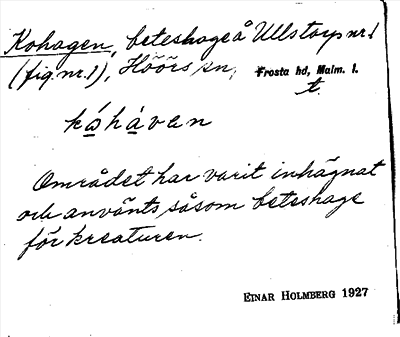 Kohagen, beteshage å Ullstorp nr 1
(fig. nr. 1), Höörs sn, Frosta hd, Malm. l.
t.
kåhàven
Området har varit inhägnat
och använts såsom beteshage
för kreaturen.
EINAR HOLMBERG 1927